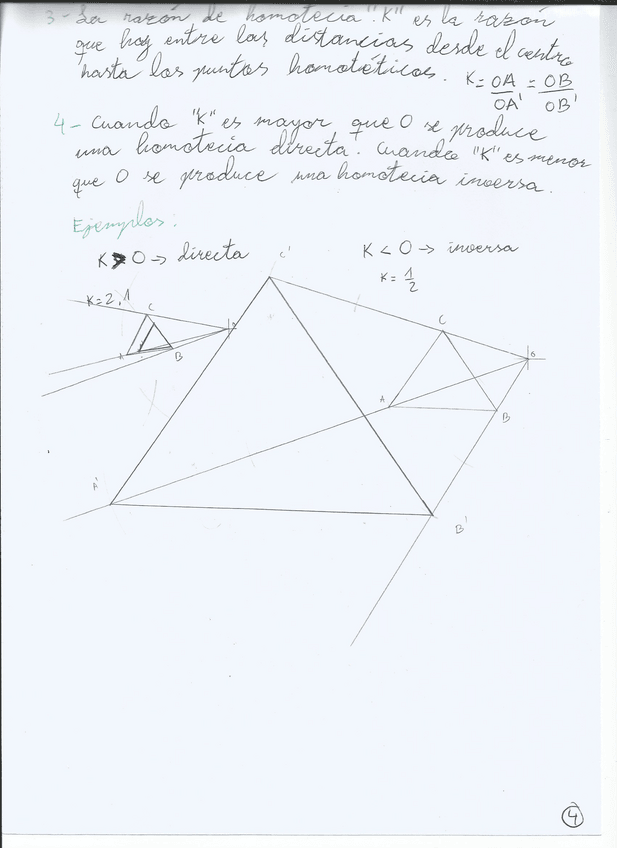 3- La razón de homotecia "K" es la razón
que hay entre las distancias desde el centro
hasta los puntos homotéticos. K = OA/OA' = OB/OB'
4- Cuando "K" es mayor que 0 se produce
una homotecia directa. Cuando "K" es menor
que 0 se produce una homotecia inversa.
Ejemplos:
K > 0 → directa
K < 0 → inversa
C'
K = 1/2
K = 2,1
C
C
O
A
B
A
B
A'
B'
4